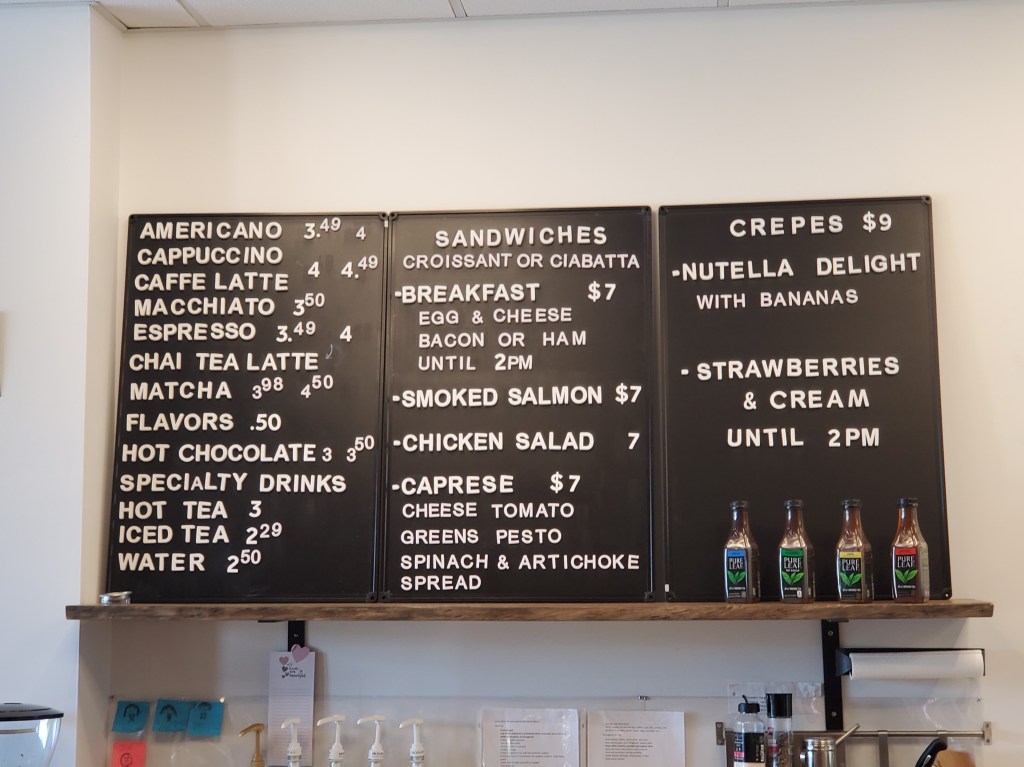 AMERICANO 3.49 4
CAPPUCCINO
CAFFE LATTE 4 4.49
MACCHIATO 3 50
ESPRESSO 3.49 4
CHAI TEA LATTE
MATCHA 3 98 4 50
FLAVORS .50
HOT CHOCOLATE 3 3 50
SPECIALTY DRINKS
HOT TEA 3
ICED TEA 2 29
WATER 2 50
SANDWICHES
CROISSANT OR CIABATTA
-BREAKFAST $7
EGG & CHEESE
BACON OR HAM
UNTIL 2PM
-SMOKED SALMON $7
-CHICKEN SALAD 7
-CAPRESE $7
CHEESE TOMATO
GREENS PESTO
SPINACH & ARTICHOKE
SPREAD
CREPES $9
-NUTELLA DELIGHT
WITH BANANAS
-STRAWBERRIES
& CREAM
UNTIL 2PM
PURE LEAF
PURE LEAF
PURE LEAF
PURE LEAF